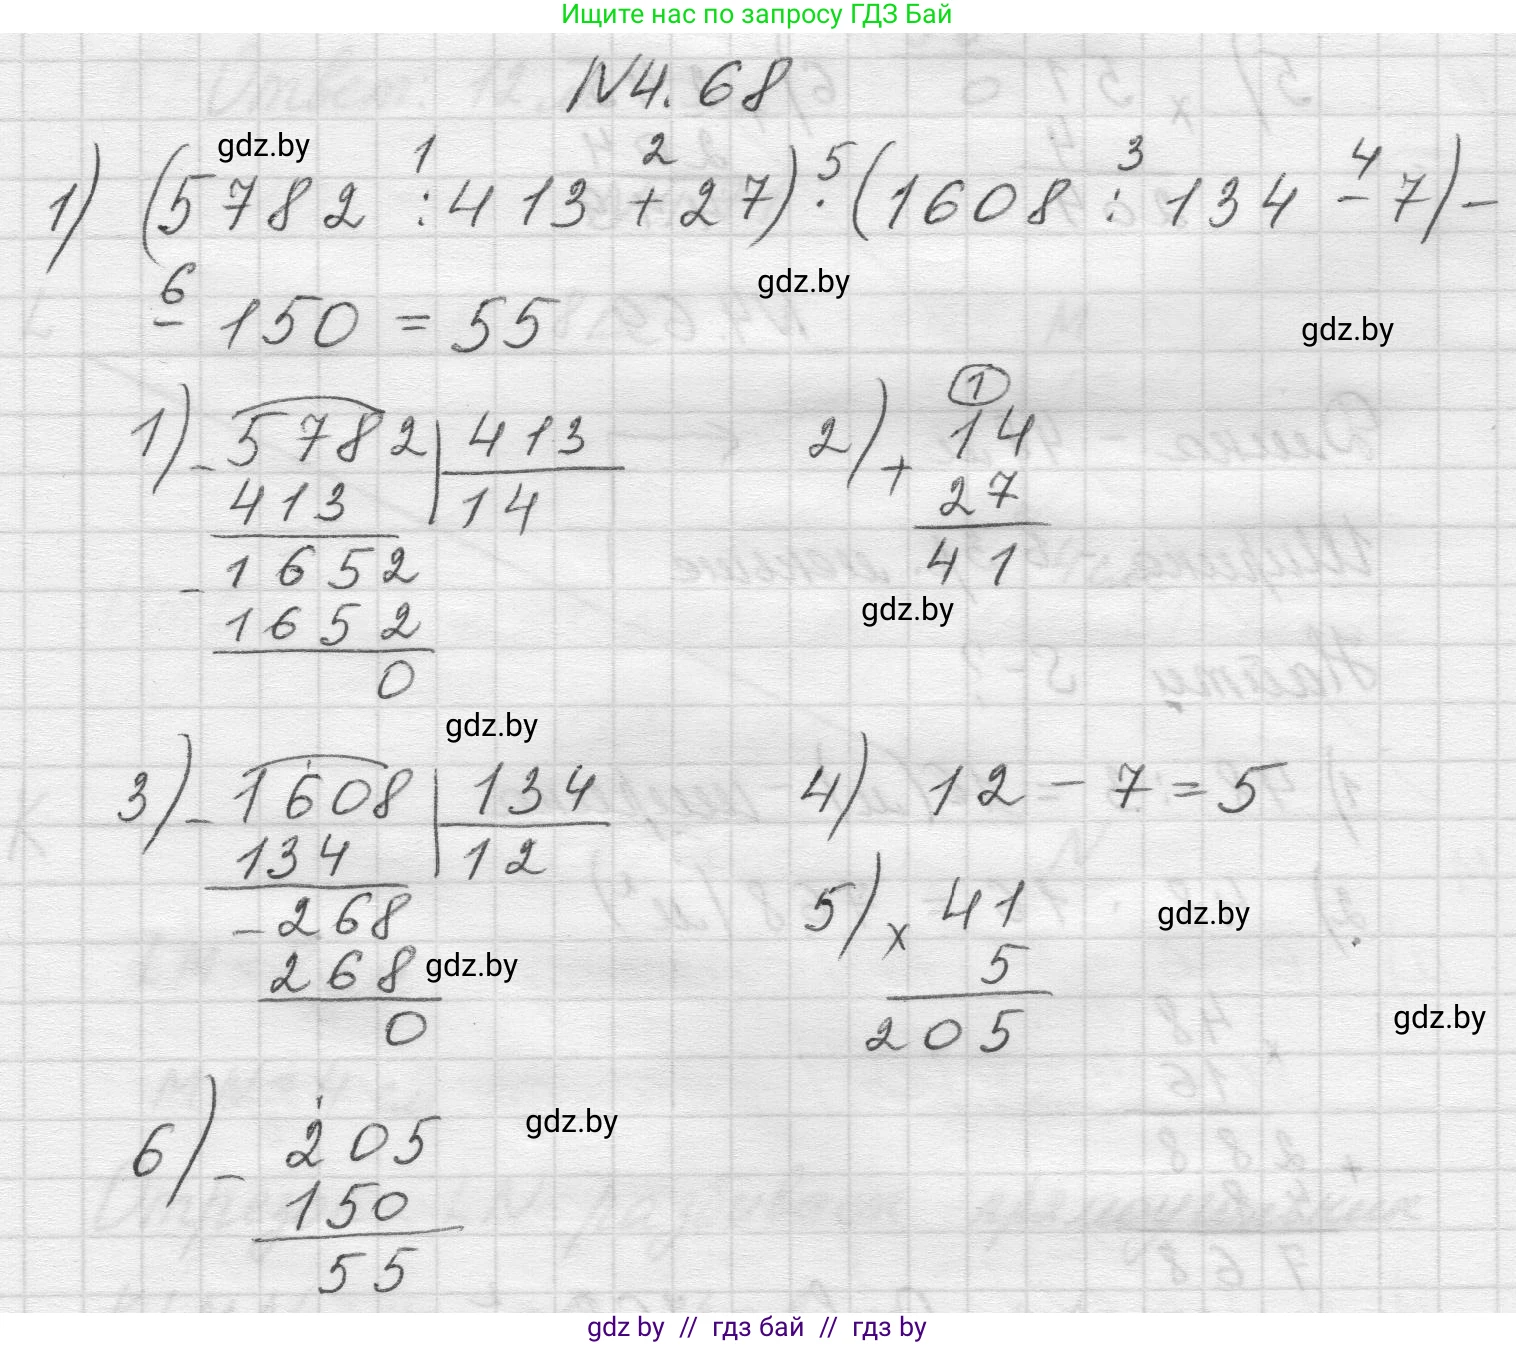 Ищите нас по запросу ГДЗ Бай
N4.68
gdz.by
1 2 5 3 4
1) (5782 : 413 + 27) · (1608 : 134 - 7) -
gdz.by
6
- 150 = 55
gdz.by
1) - 5782 | 413
413 14
- 1652
1652
0
2) + 14
1
27
41
gdz.by
gdz.by
3) - 1608 | 134
134 12
- 268
268
0
gdz.by
4) 12 - 7 = 5
5) x 41
5
205
gdz.by
gdz.by
6) - 205
150
55
gdz.by
gdz by // гдз бай // гдз by